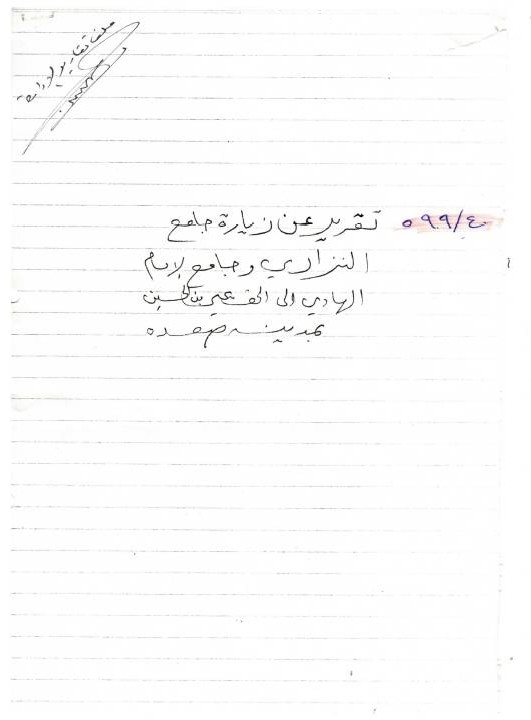 ملف تقارير الإدارة
٥٩٩/٤ تقرير عن زيارة جامع
النزاري وجامع الإمام
الهادي إلى الحق يحيى بن الحسين
بمدينة صعده